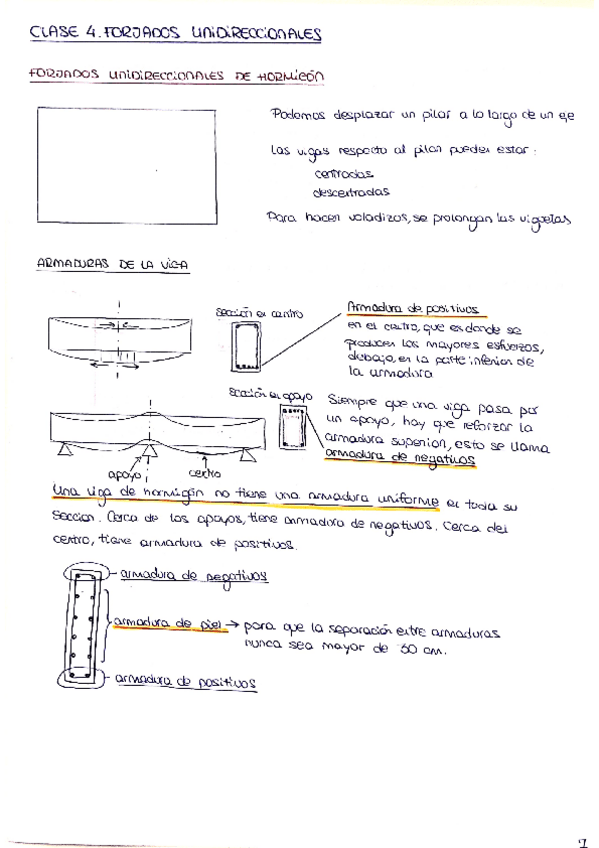 CLASE 4. FORJADOS UNIDIRECCIONALES
FORJADOS UNIDIRECCIONALES DE HORMIGÓN
Podemos desplazar un pilar a lo largo de un eje
Las vigas respecto al pilar pueden estar:
centradas
descentradas
Para hacer voladizos, se prolongan las viguetas
ARMADURAS DE LA VIGA
Sección en centro
Armadura de positivos
en el centro, que es donde se
producen los mayores esfuerzos,
debajo, en la parte inferior de
la armadura
Sección en apoyo
Siempre que una viga pasa por
un apoyo, hay que reforzar la
armadura superior, esto se llama
armadura de negativos
apoyo
centro
Una viga de hormigón no tiene una armadura uniforme en toda su
sección. Cerca de los apoyos, tiene armadura de negativos. Cerca del
centro, tiene armadura de positivos.
armadura de negativos
armadura de piel → para que la separación entre armaduras
nunca sea mayor de 30 cm.
armadura de positivos
1